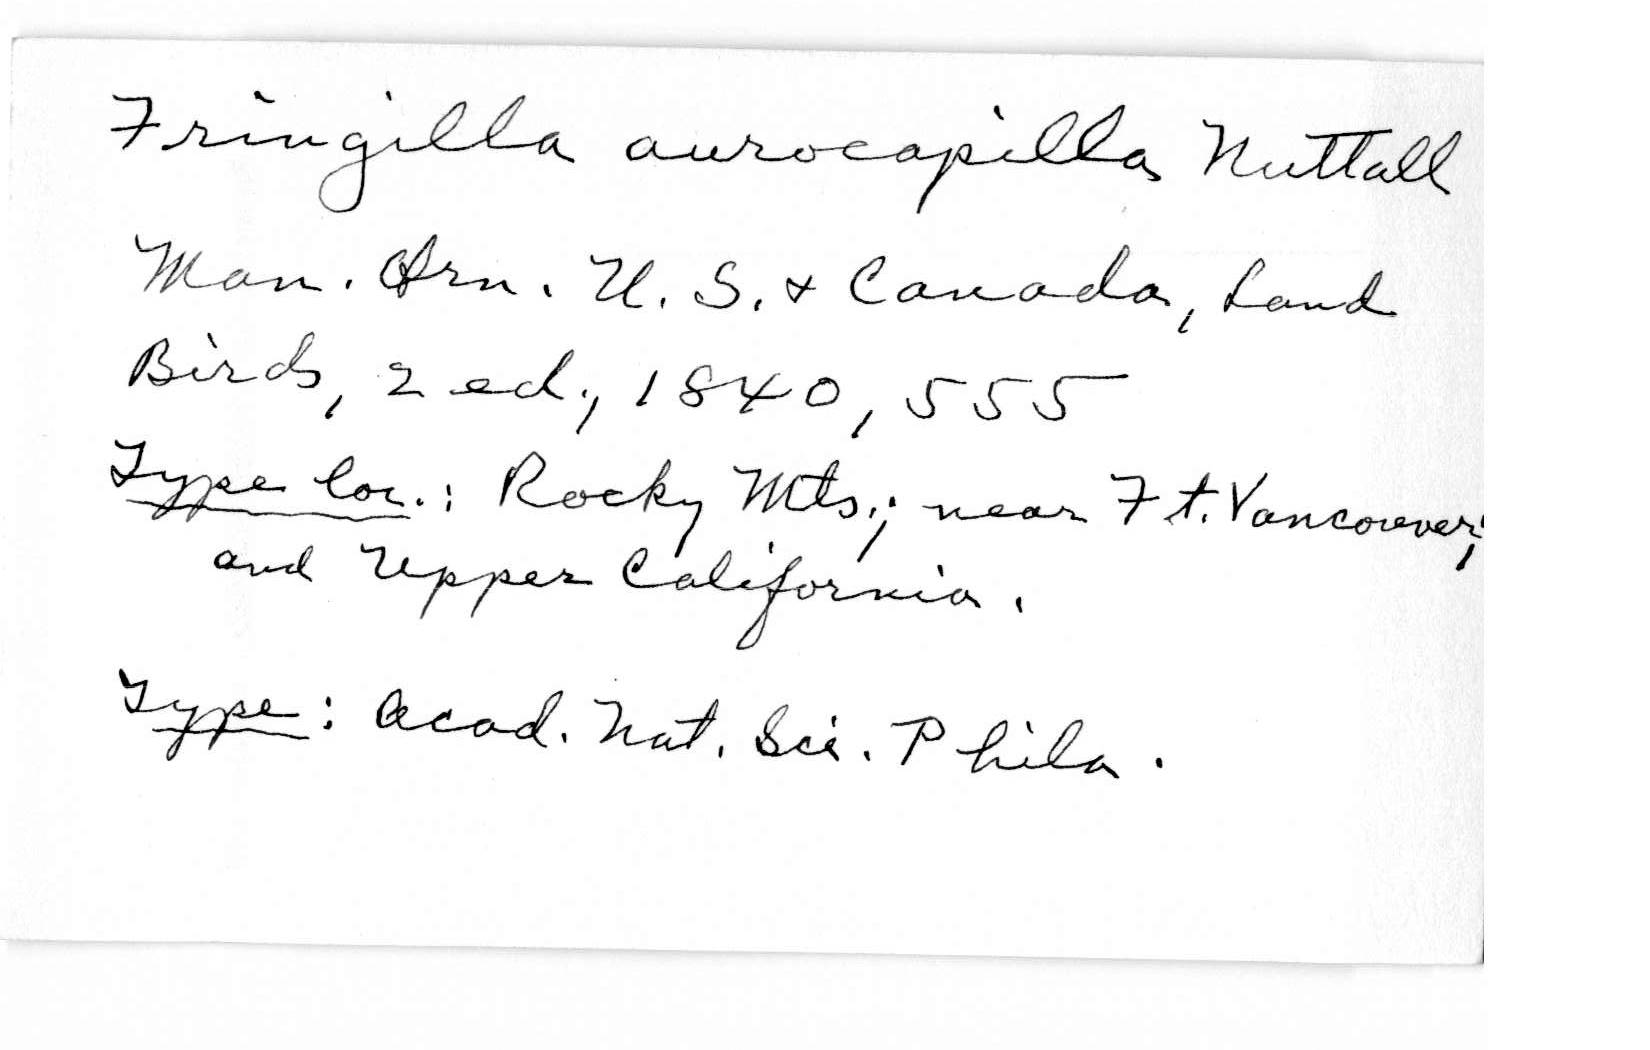 Fringilla aurocapilla Nuttall
Man. Orn. U. S. & Canada, Land
Birds, 2 ed., 1840, 555
Type loc.: Rocky Mts.; near Ft. Vancouver;
and Upper California.
Type: Acad. Nat. Sci. Phila.